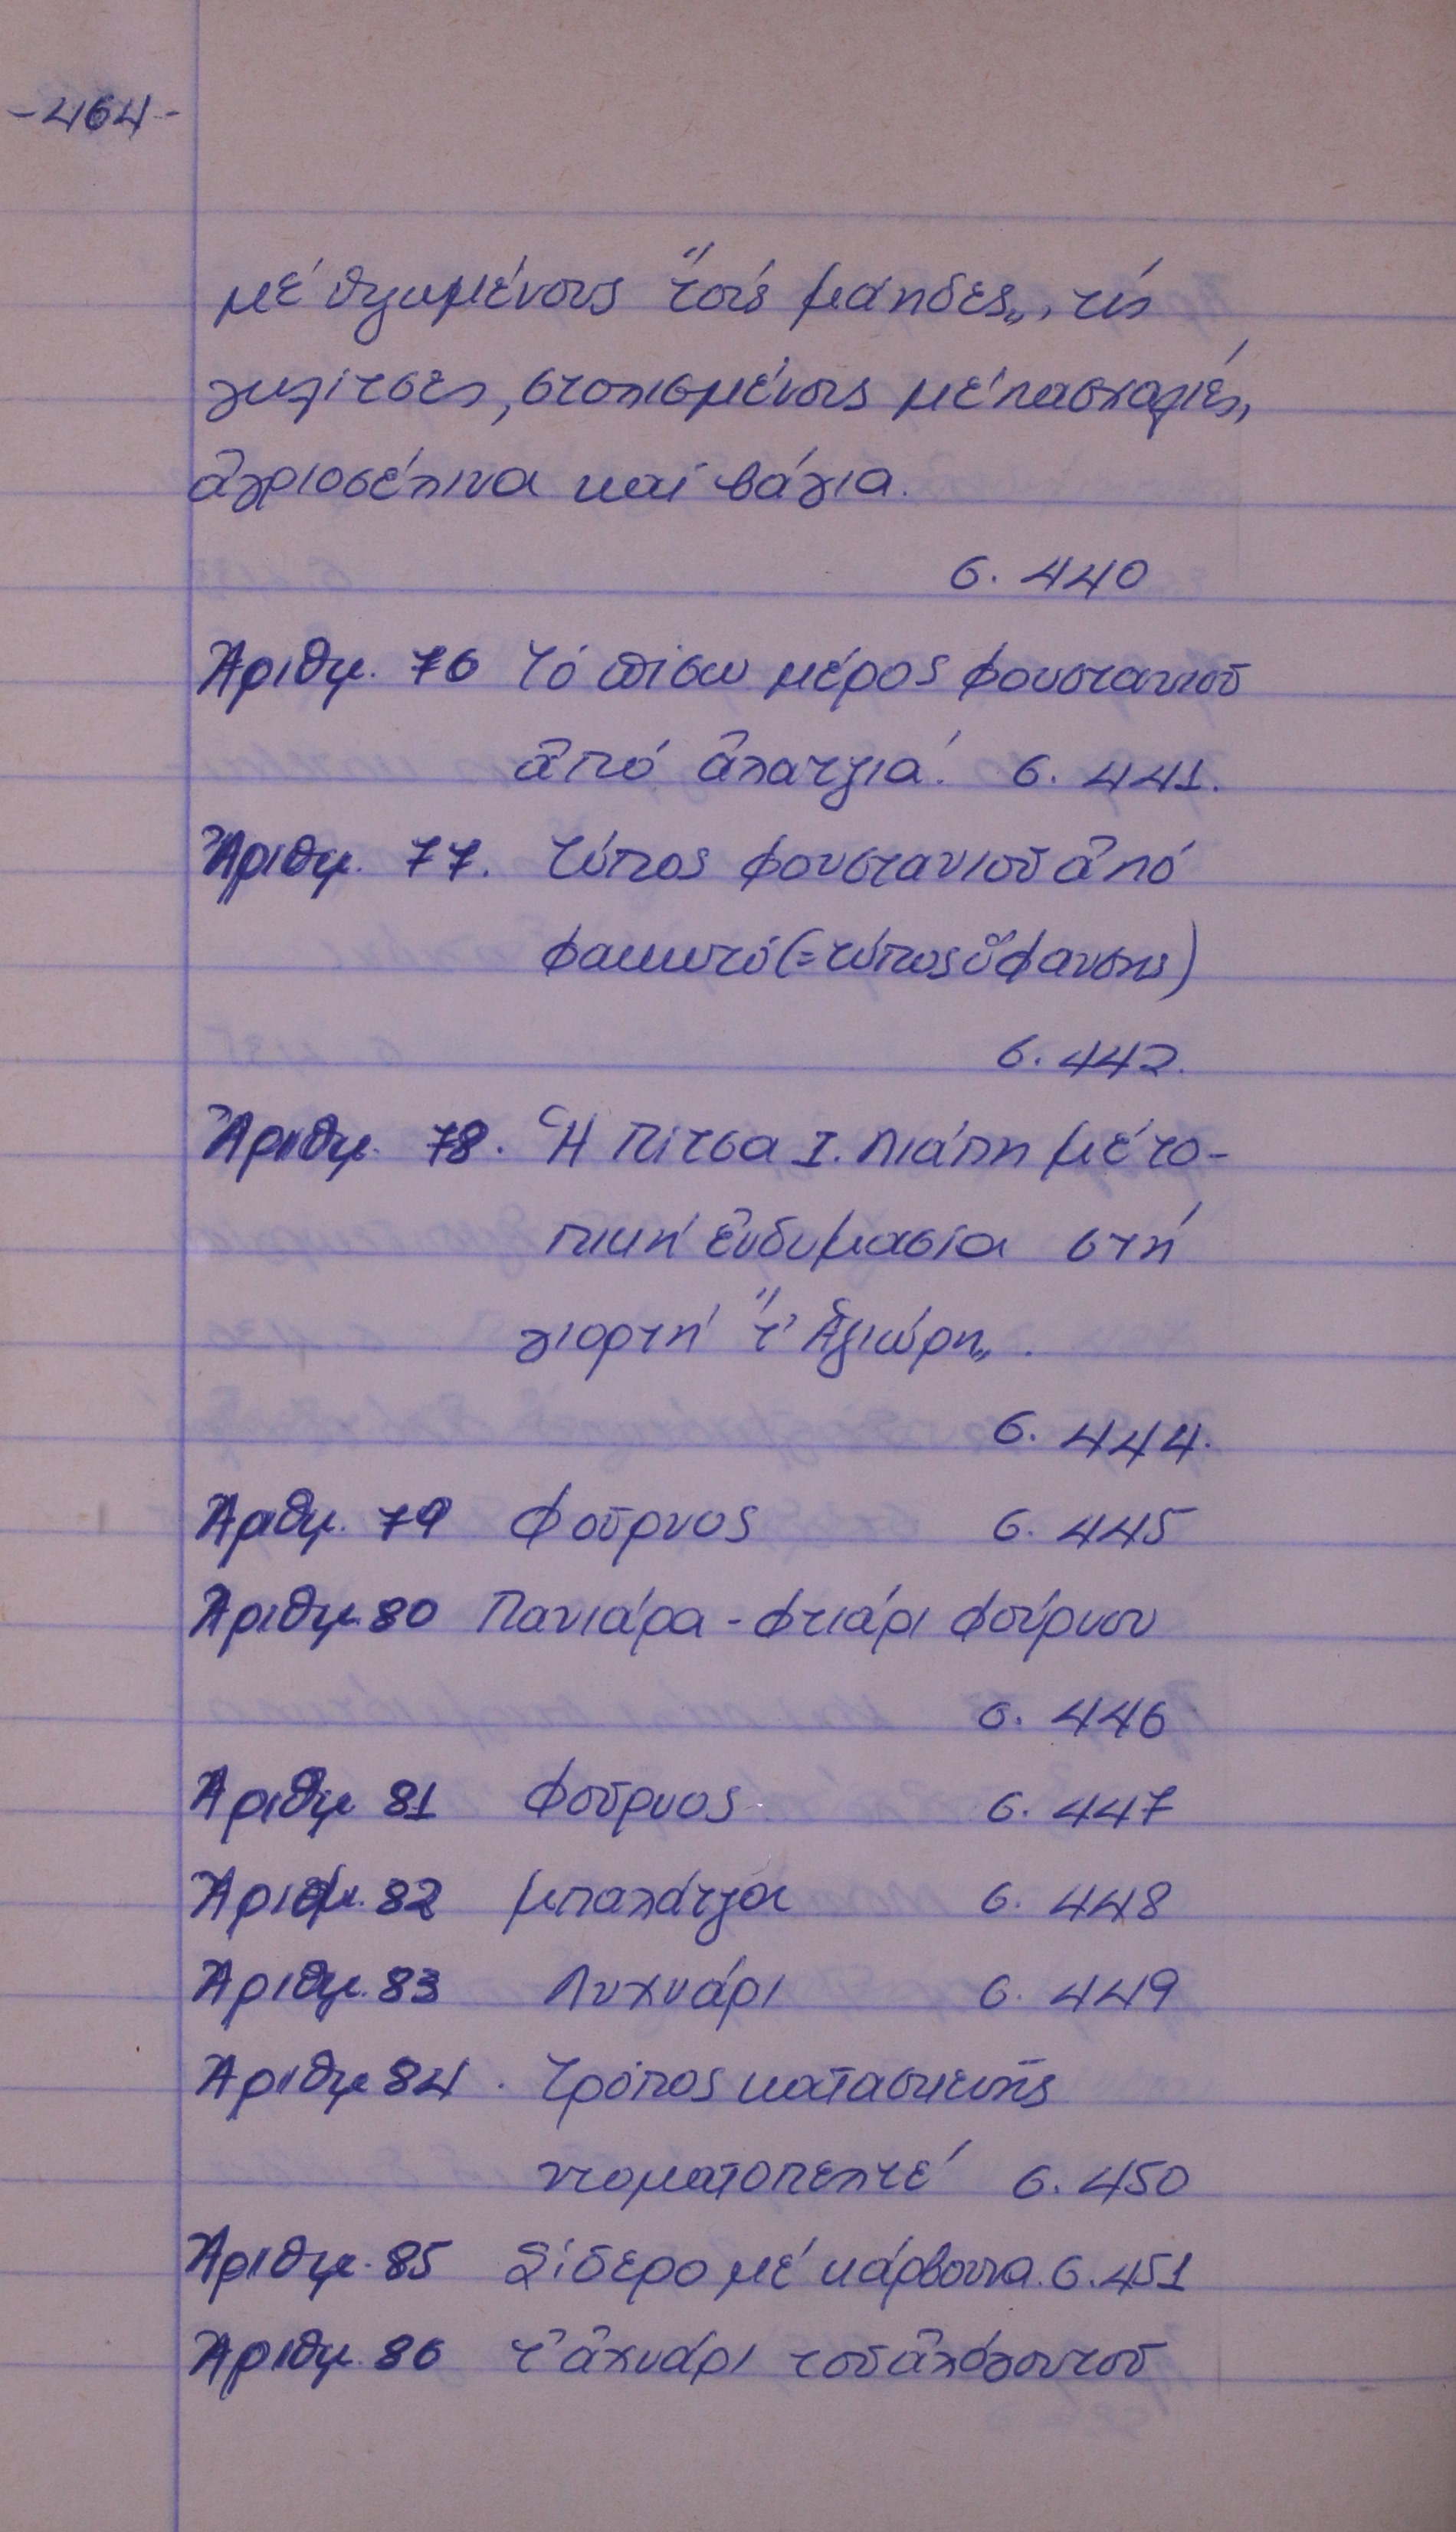 -464-
μέ ὑψωμένους "τσίς μάηδες„, τίς
γκλίτσες, στολισμένους μέ πασχαλιές,
ἀγριοσέλινα καί βάγια.
σ. 440
Ἀριθμ. 76 Τό πίσω μέρος φουστανιοῦ
ἀπό ἀλατζιά. σ. 441.
Ἀριθμ. 77. Τύπος φουστανιοῦ ἀπό
φακωτό (= τύπος ὕφανσης)
σ. 442.
Ἀριθμ. 78. Ἡ Πίτσα Ι. Λιάπη μέ το-
πική ἐνδυμασία στή
γιορτή "τ' Ἁγιώρη„.
σ. 444.
Ἀριθμ. 79 Φοῦρνος σ. 445
Ἀριθμ. 80 Πανιάρα - φτιάρι φούρνου
σ. 446
Ἀριθμ 81 Φοῦρνος σ. 447
Ἀριθμ. 82 μπαλάτζα σ. 448
Ἀριθμ. 83 Λυχνάρι σ. 449
Ἀριθμ 84. Τρόπος κατασκευῆς
ντοματοπελτέ σ. 450
Ἀριθμ. 85 Σίδερο μέ κάρβουνα. σ. 451
Ἀριθμ. 86 τ' ἀχνάρι τοῦ